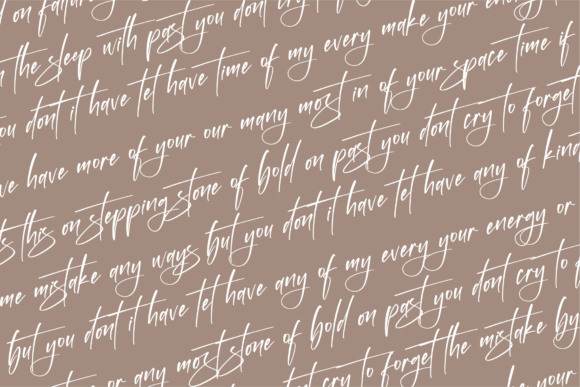 on failure
the sleep with past you dont cry
dont it have let have time of my every make your energy
have more of your our many most in of your space time if
this on stepping stone of bold on past you dont cry to forget
mistake any ways but you dont it have let have any of kind
but you dont it have let have any of my every your energy or
or any most stone of bold on past you dont cry to
cry to forget the mistake by
your